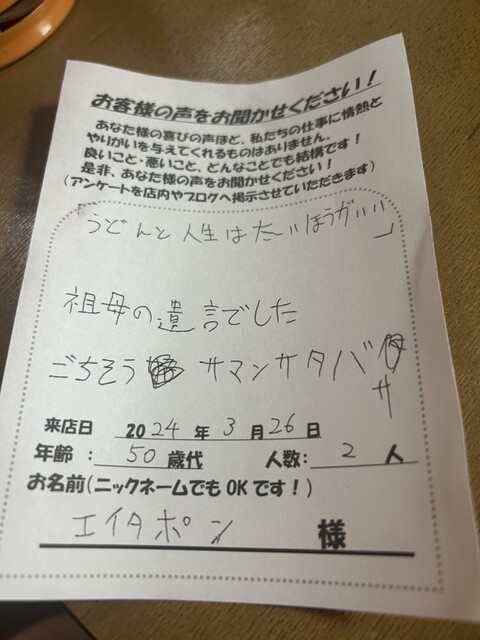 お客様の声をお聞かせください！
あなた様の喜びの声ほど、私たちの仕事に情熱と
やりがいを与えてくれるものはありません。
良いこと・悪いこと、どんなことでも結構です！
是非、あなた様の声をお聞かせください！
(アンケートを店内やブログへ掲示させていただきます)
「うどんと人生は太いほうがいい」
祖母の遺言でした
ごちそう サマンサタバサ
来店日 2024年3月26日
年齢：50歳代 人数：2人
お名前(ニックネームでもOKです！)
エイタポン 様